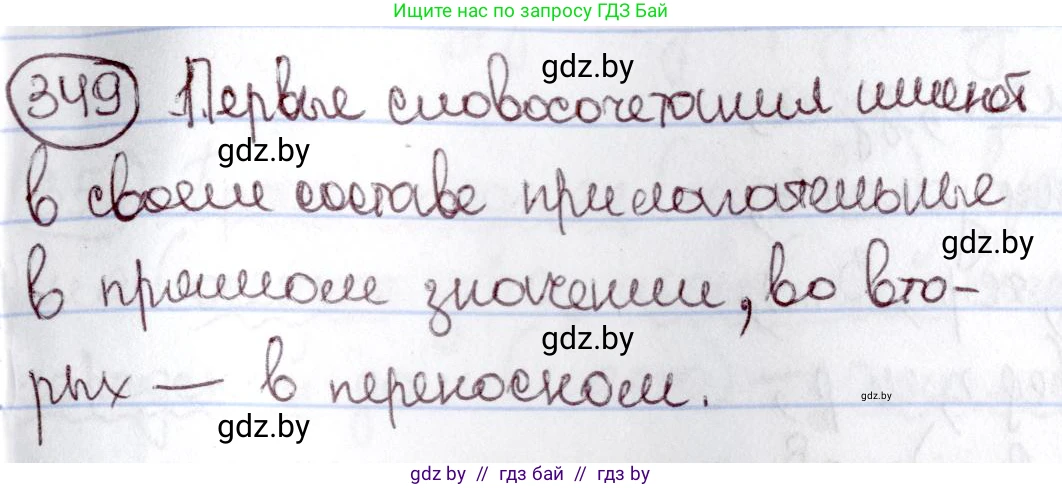 Ищите нас по запросу ГДЗ Бай
349 Первые словосочетания имеют
gdz.by
gdz.by
в своем составе прилагательные
gdz.by
в прямом значении, во вто-
gdz.by
рых — в переносном.
gdz.by
gdz.by
gdz.by // гдз бай // гдз by